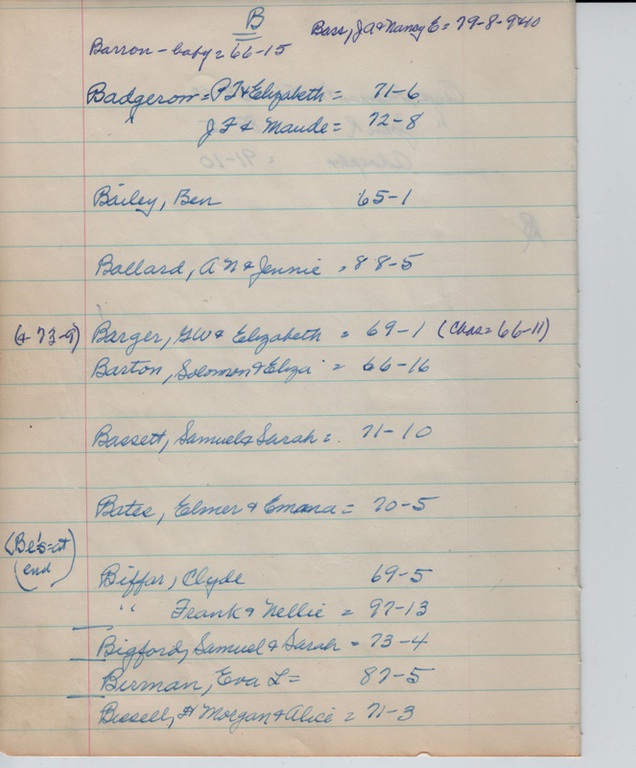 B
Bass, JA & Nancy E = 79-8-9+10
Barron - baby = 66-15
Badgerow = PT & Elizabeth = 71-6
JF & Maude = 72-8
Bailey, Ben 65-1
Ballard, A N & Jennie = 88-5
(+ 73-9) Barger, GW & Elizabeth = 69-1 (Chas = 66-11)
Barton, Solomon & Eliza = 66-16
Bassett, Samuel & Sarah = 71-10
Bates, Elmer & Emma = 70-5
(Be's = at
end)
Biffar, Clyde 69-5
" Frank & Nellie = 97-13
Bigford, Samuel & Sarah = 73-4
Birman, Eva L = 87-5
Bissell, H Morgan & Alice = 71-3